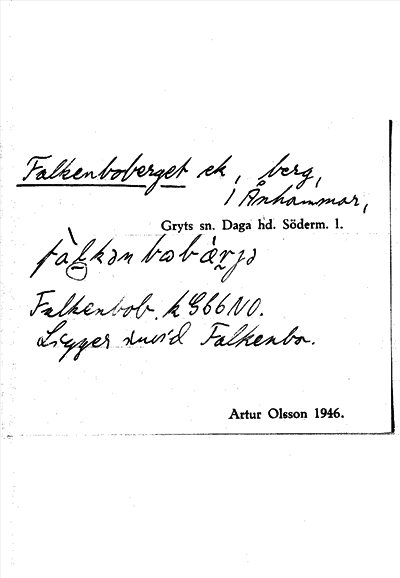 Falkenboberget ek, berg,
i Ånhammar,
Gryts sn. Daga hd. Söderm. l.
fàlkən bobærjə
Falkenbob. k G66 NO.
Ligger invid Falkenbo.
Artur Olsson 1946.